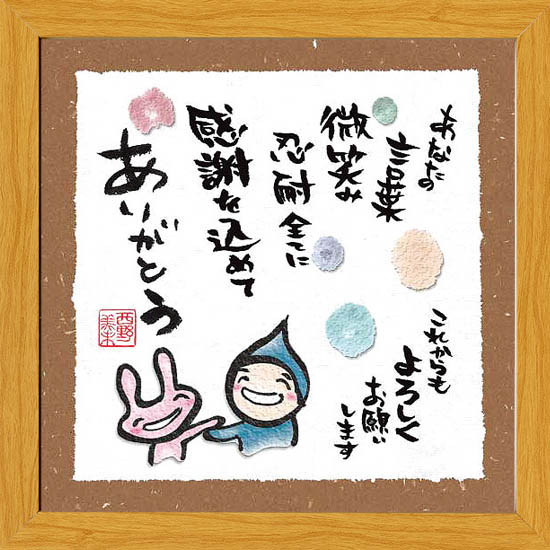 あなたの
言葉
微笑み
忍耐全てに
感謝を込めて
ありがとう
これからも
よろしく
お願い
します